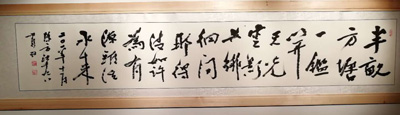 半畝
方塘
一鑑
開
天光
雲影
共徘
徊問
渠那得
清如許
為有
源頭活
水来